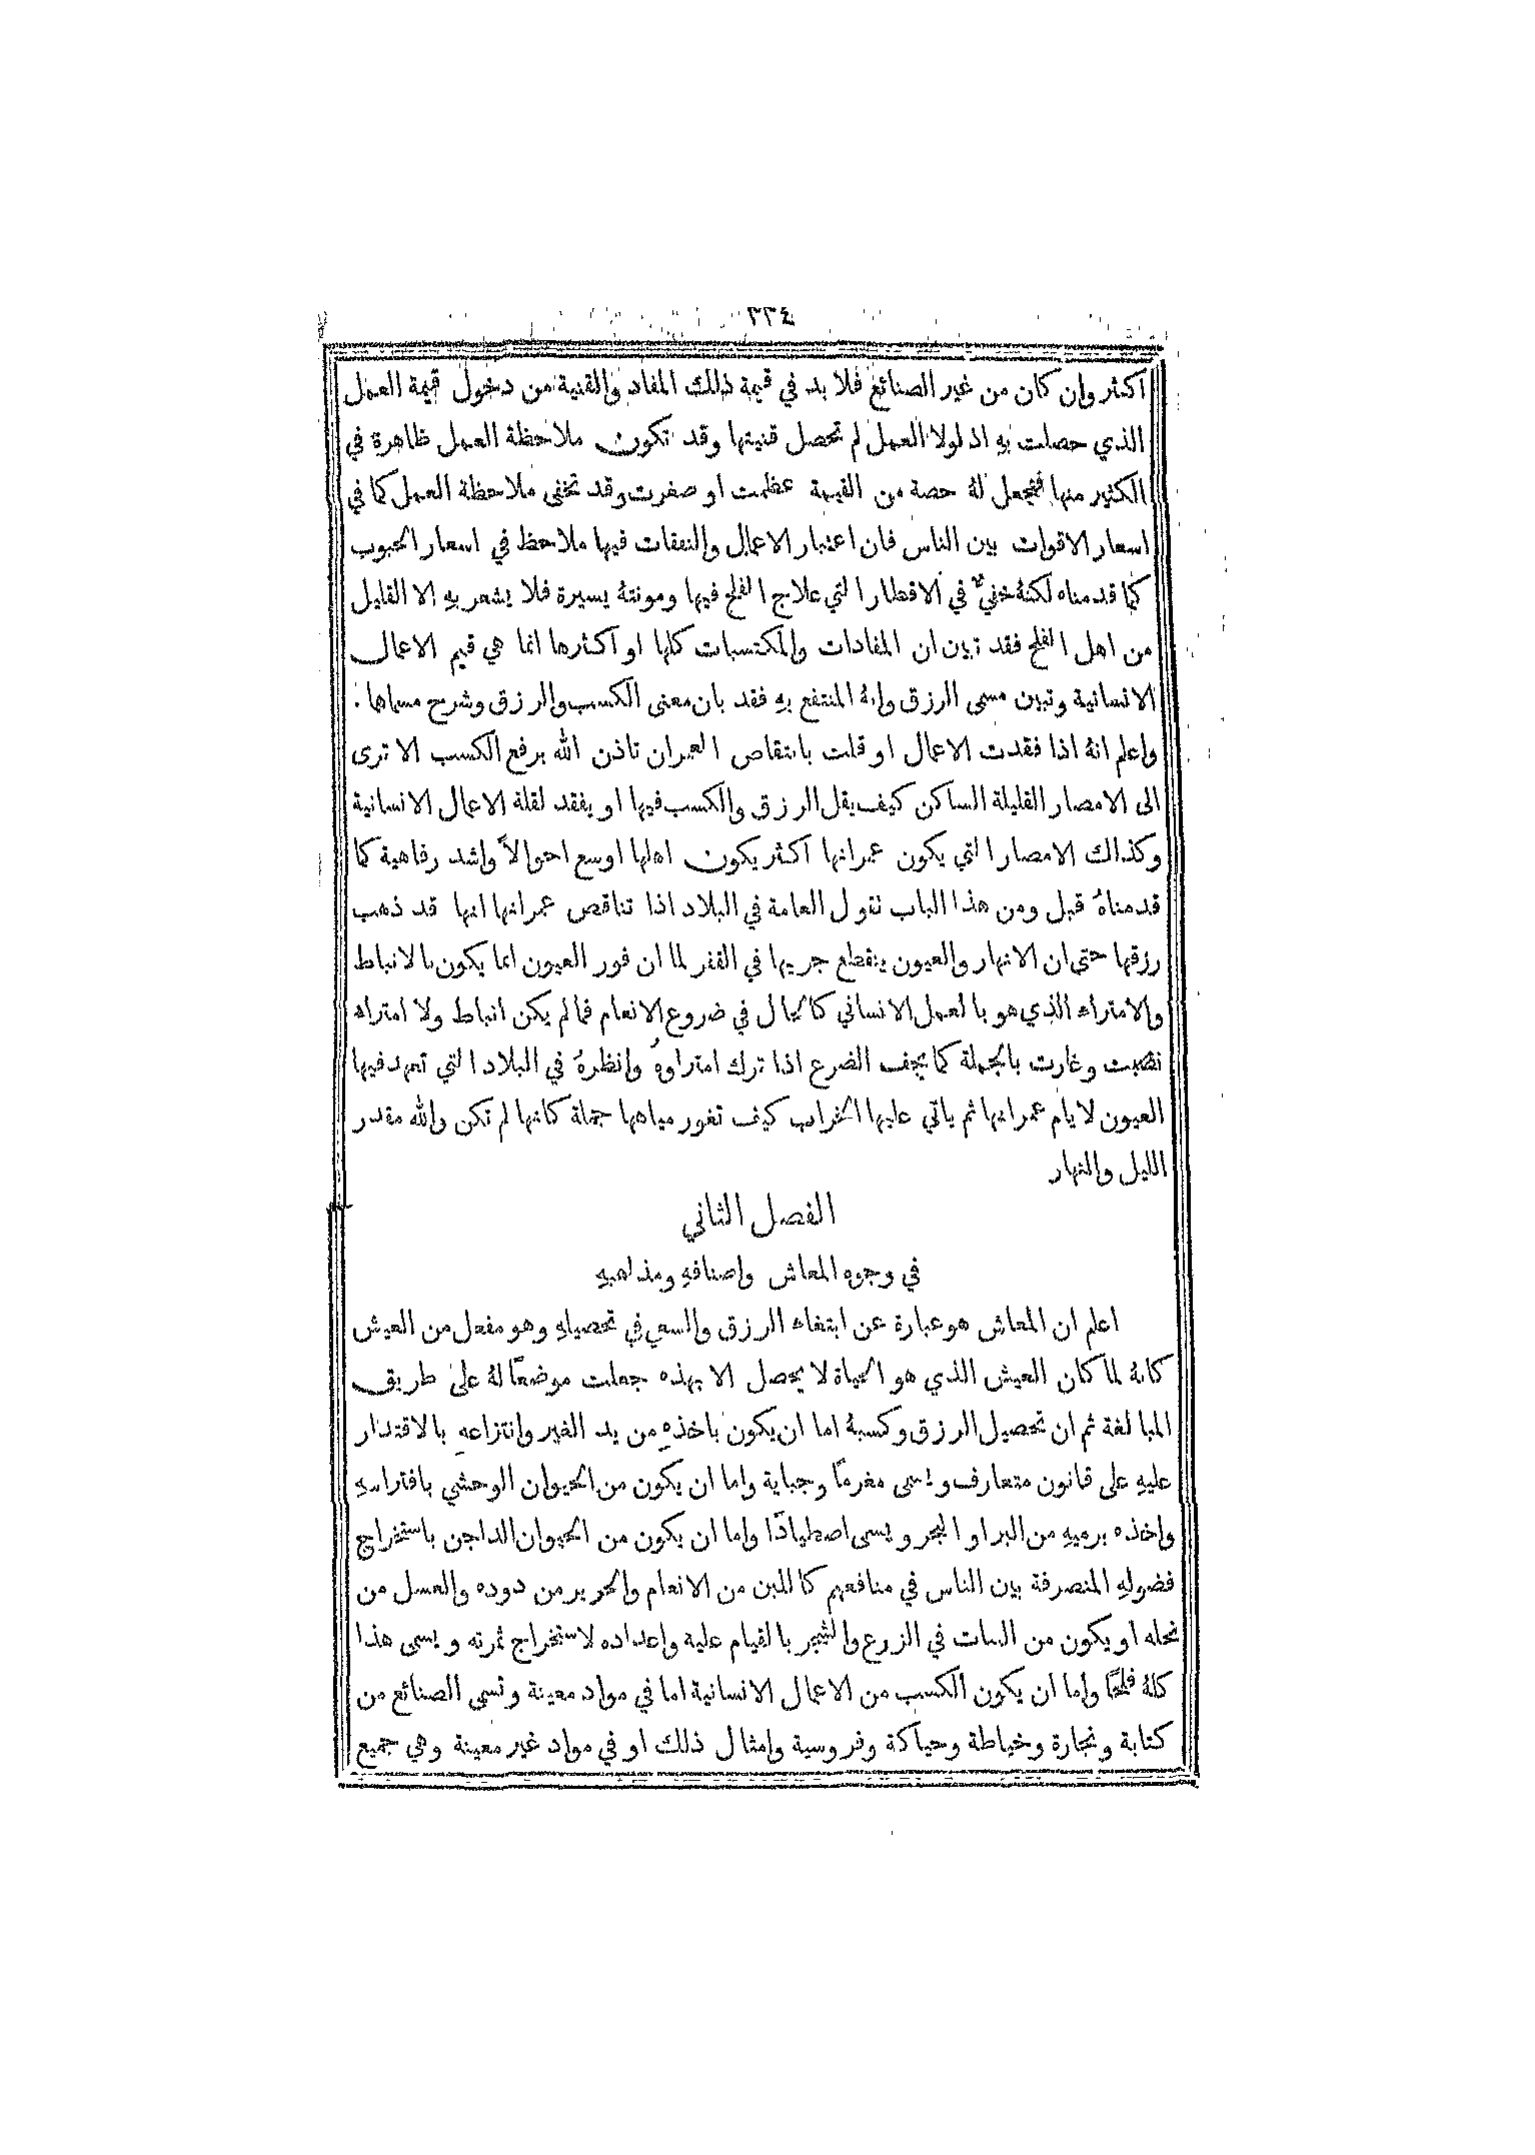 ٣٣٤
اكثر وان كان من غير الصنائع فلا بد في قيمة ذلك المفاد والقنية من دخول قيمة العمل
الذي حصلت به اذ لولا العمل لم تحصل قنيتها وقد تكون ملاحظة العمل ظاهرة في
الكثير منها فتجعل لهُ حصة من القيمة عظمت او صغرت وقد تخفى ملاحظة العمل كما في
اسعار الاقوات بين الناس فان اعتبار الاعمال والنفقات فيها ملاحظ في اسعار الحبوب
كما قدمناه لكنهُ خفيٌ في الاقطار التي علاج الفلح فيها ومونتهُ يسيرة فلا يشعر بهِ الا القليل
من اهل الفلح فقد تبين ان المفادات والمكتسبات كلها او اكثرها انما هي قيم الاعمال
الانسانية وتبين مسمى الرزق وانهُ المنتفع بهِ فقد بان معنى الكسب والرزق وشرح مسماها .
واعلم انهُ اذا فقدت الاعمال او قلت بانتقاص العمران تاذن الله برفع الكسب الا ترى
الى الامصار القليلة الساكن كيف يقل الرزق والكسب فيها او يفقد لقلة الاعمال الانسانية
وكذلك الامصار التي يكون عمرانها اكثر يكون اهلها اوسع احوالاً واشد رفاهية كما
قدمناهُ قبل ومن هذا الباب تقول العامة في البلاد اذا تناقص عمرانها انها قد ذهب
رزقها حتى ان الانهار والعيون ينقطع جريها في القفر لما ان فور العيون انما يكون بالانباط
والامتراء الذي هو بالعمل الانساني كالحال في ضروع الانعام فما لم يكن انباط ولا امتراء
نضبت وغارت بالجملة كما يجف الضرع اذا ترك امتراوهُ وانظرهُ في البلاد التي تعهد فيها
العيون لايام عمرانها ثم ياتي عليها الخراب كيف تغور مياهها جملة كانها لم تكن والله مقدر
الليل والنهار
الفصل الثاني
في وجوه المعاش واصنافهِ ومذاهبهِ
اعلم ان المعاش هو عبارة عن ابتغاء الرزق والسعي في تحصيلهِ وهو مفعل من العيش
كانهُ لما كان العيش الذي هو الحياة لا يحصل الا بهذه جعلت موضعًا لهُ على طريق
المبالغة ثم ان تحصيل الرزق وكسبهُ اما ان يكون باخذهِ من يد الغير وانتزاعهِ بالاقتدار
عليهِ على قانون متعارف ويسمى مغرمًا وجباية واما ان يكون من الحيوان الوحشي بافتراسهِ
واخذه برميهِ من البر او البحر ويسمى اصطيادًا واما ان يكون من الحيوان الداجن باستخراج
فضولهِ المنصرفة بين الناس في منافعهم كاللبن من الانعام والحرير من دوده والعسل من
نحله او يكون من النبات في الزرع والشجر بالقيام علية واعداده لاستخراج ثمرته ويسمى هذا
كلهُ فلحًا واما ان يكون الكسب من الاعمال الانسانية اما في مواد معينة وتسمى الصنائع من
كتابة ونجارة وخياطة وحياكة وفروسية وامثال ذلك او في مواد غير معينة وهي جميع